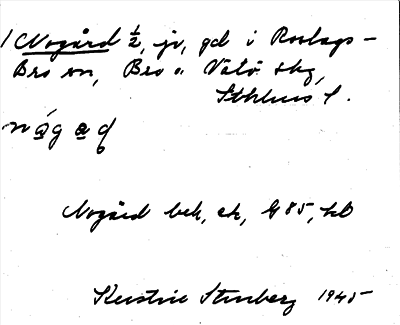 1 Nogård ½, jr, gd i Roslags-
Bro sn, Bro o Vätö skg,
Sthlms l.
Nogård bek, ek, G 85, kb
Kerstin Stenberg 1945